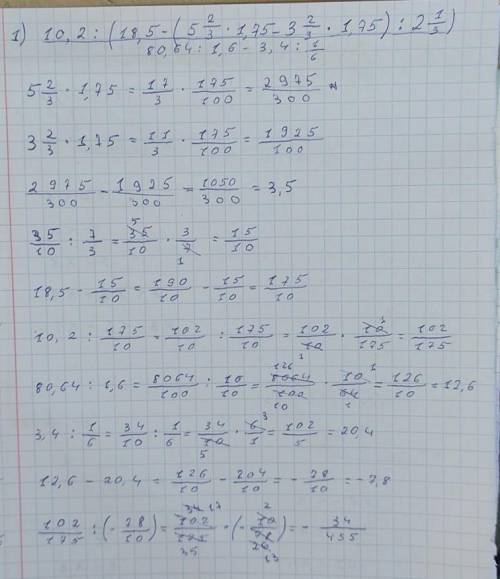 1) 10,2 : (18,5 - (5 2/3 · 1,75 - 3 2/3 · 1,75) : 2 1/3)
80,64 : 1,6 - 3,4 : 1/6
5 2/3 · 1,75 = 17/3 · 175/100 = 2975/300
3 2/3 · 1,75 = 11/3 · 175/100 = 1925/100
2975/300 - 1925/300 = 1050/300 = 3,5
35/10 : 7/3 = 35/10 · 3/7 = 15/10
18,5 - 15/10 = 190/10 - 15/10 = 175/10
10,2 : 175/10 = 102/10 : 175/10 = 102/10 · 10/175 = 102/175
80,64 : 1,6 = 8064/100 : 10/10 = 8064/100 · 10/64 = 126/10 = 12,6
3,4 : 1/6 = 34/10 : 1/6 = 34/10 · 6/1 = 102/5 = 20,4
12,6 - 20,4 = 126/10 - 204/10 = - 78/10 = -7,8
102/175 : (- 78/10) = 102/175 · (- 10/78) = - 34/455